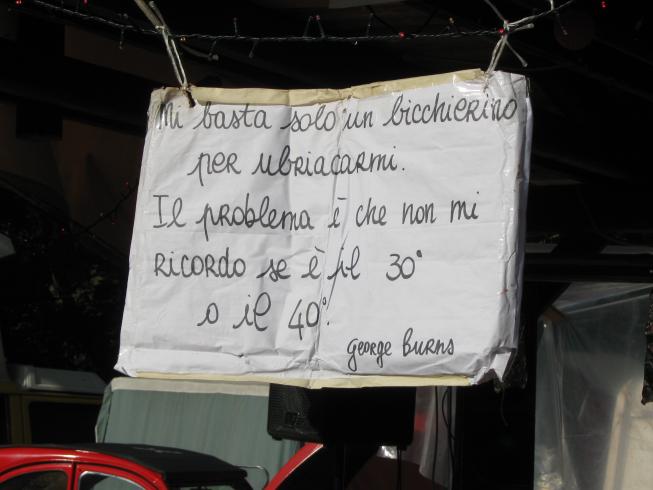 Mi basta solo un bicchierino
per ubriacarmi.
Il problema è che non mi
RICORDO se è il 30°
o il 40°.
George Burns